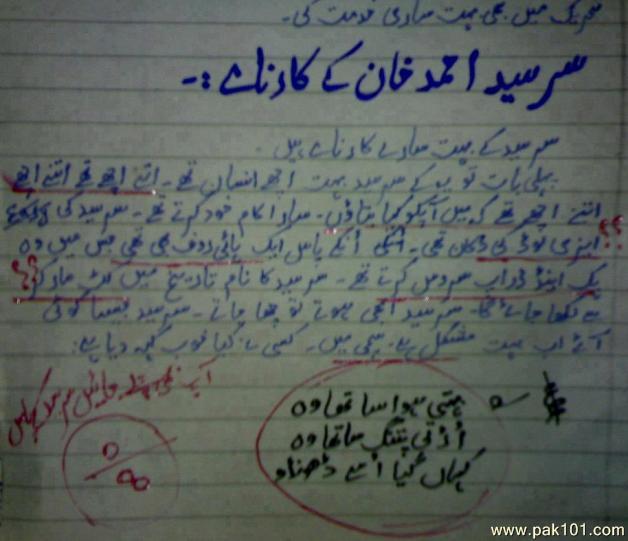 تحریک میں بھی بہت ساری خدمت کی۔
سر سید احمد خان کے کارنامے :۔
سر سید کے بہت سارے کارنامے ہیں۔
پہلی بات تو یہ کے سر سید بہت اچھے انسان تھے۔ اتنے اچھے تھے اتنے اچھے
اتنے اچھے تھے کہ میں آپکو کیا بتاؤں۔ سارا کام خود کرتے تھے۔ سر سید کی
ایزی لوڈ کی دکان تھی۔ انکے پاس ایک ہائی روف بھی تھی جس میں وہ ؟؟
پک اینڈ ڈراپ سروس کرتے تھے۔ سر سید کا نام تاریخ میں کٹ مار کر ؟؟
لکھا جائے گا۔ سر سید ابھی ہوتے تو چھا جاتے۔ سر سید جیسا کوئی
آئے اب بہت مشکل ہے۔ کسی نے کیا خوب کہہ دیا ہے:
آپ
بہتی ہوا سا تھا وہ
اڑتی پتنگ سا تھا وہ
کہاں گیا اسے ڈھونڈو
0
www.pak101.com